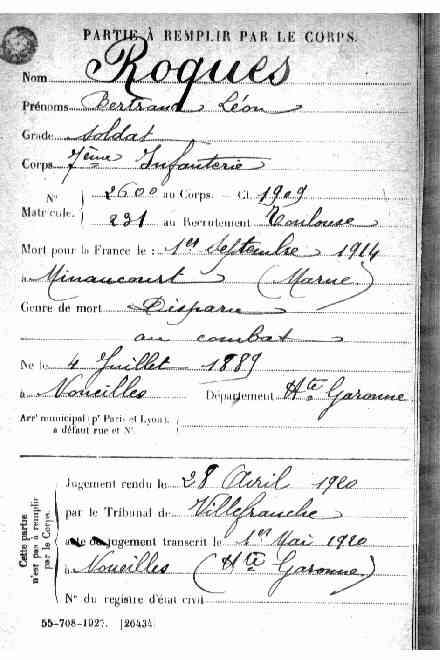 PARTIE À REMPLIR PAR LE CORPS.
Nom Roques
Prénoms Bertrand Léon
Grade Soldat
Corps 7ème Infanterie
N° Matricule. 2600 au Corps. Cl. 1909
231 au Recrutement Toulouse
Mort pour la France le : 1er Septembre 1914
à Minaucourt (Marne)
Genre de mort Disparu
au combat
Né le 4 Juillet 1889
à Noueilles Département Hte Garonne
Arr' municipal (pr Paris et Lyon),
à défaut rue et N°.
Cette partie
n'est pas à remplir
par le Corps.
Jugement rendu le 28 Avril 1920
par le Tribunal de Villefranche
acte ou jugement transcrit le 1er Mai 1920
à Noueilles (Hte Garonne)
N° du registre d'état civil
55-708-1927. [26434]